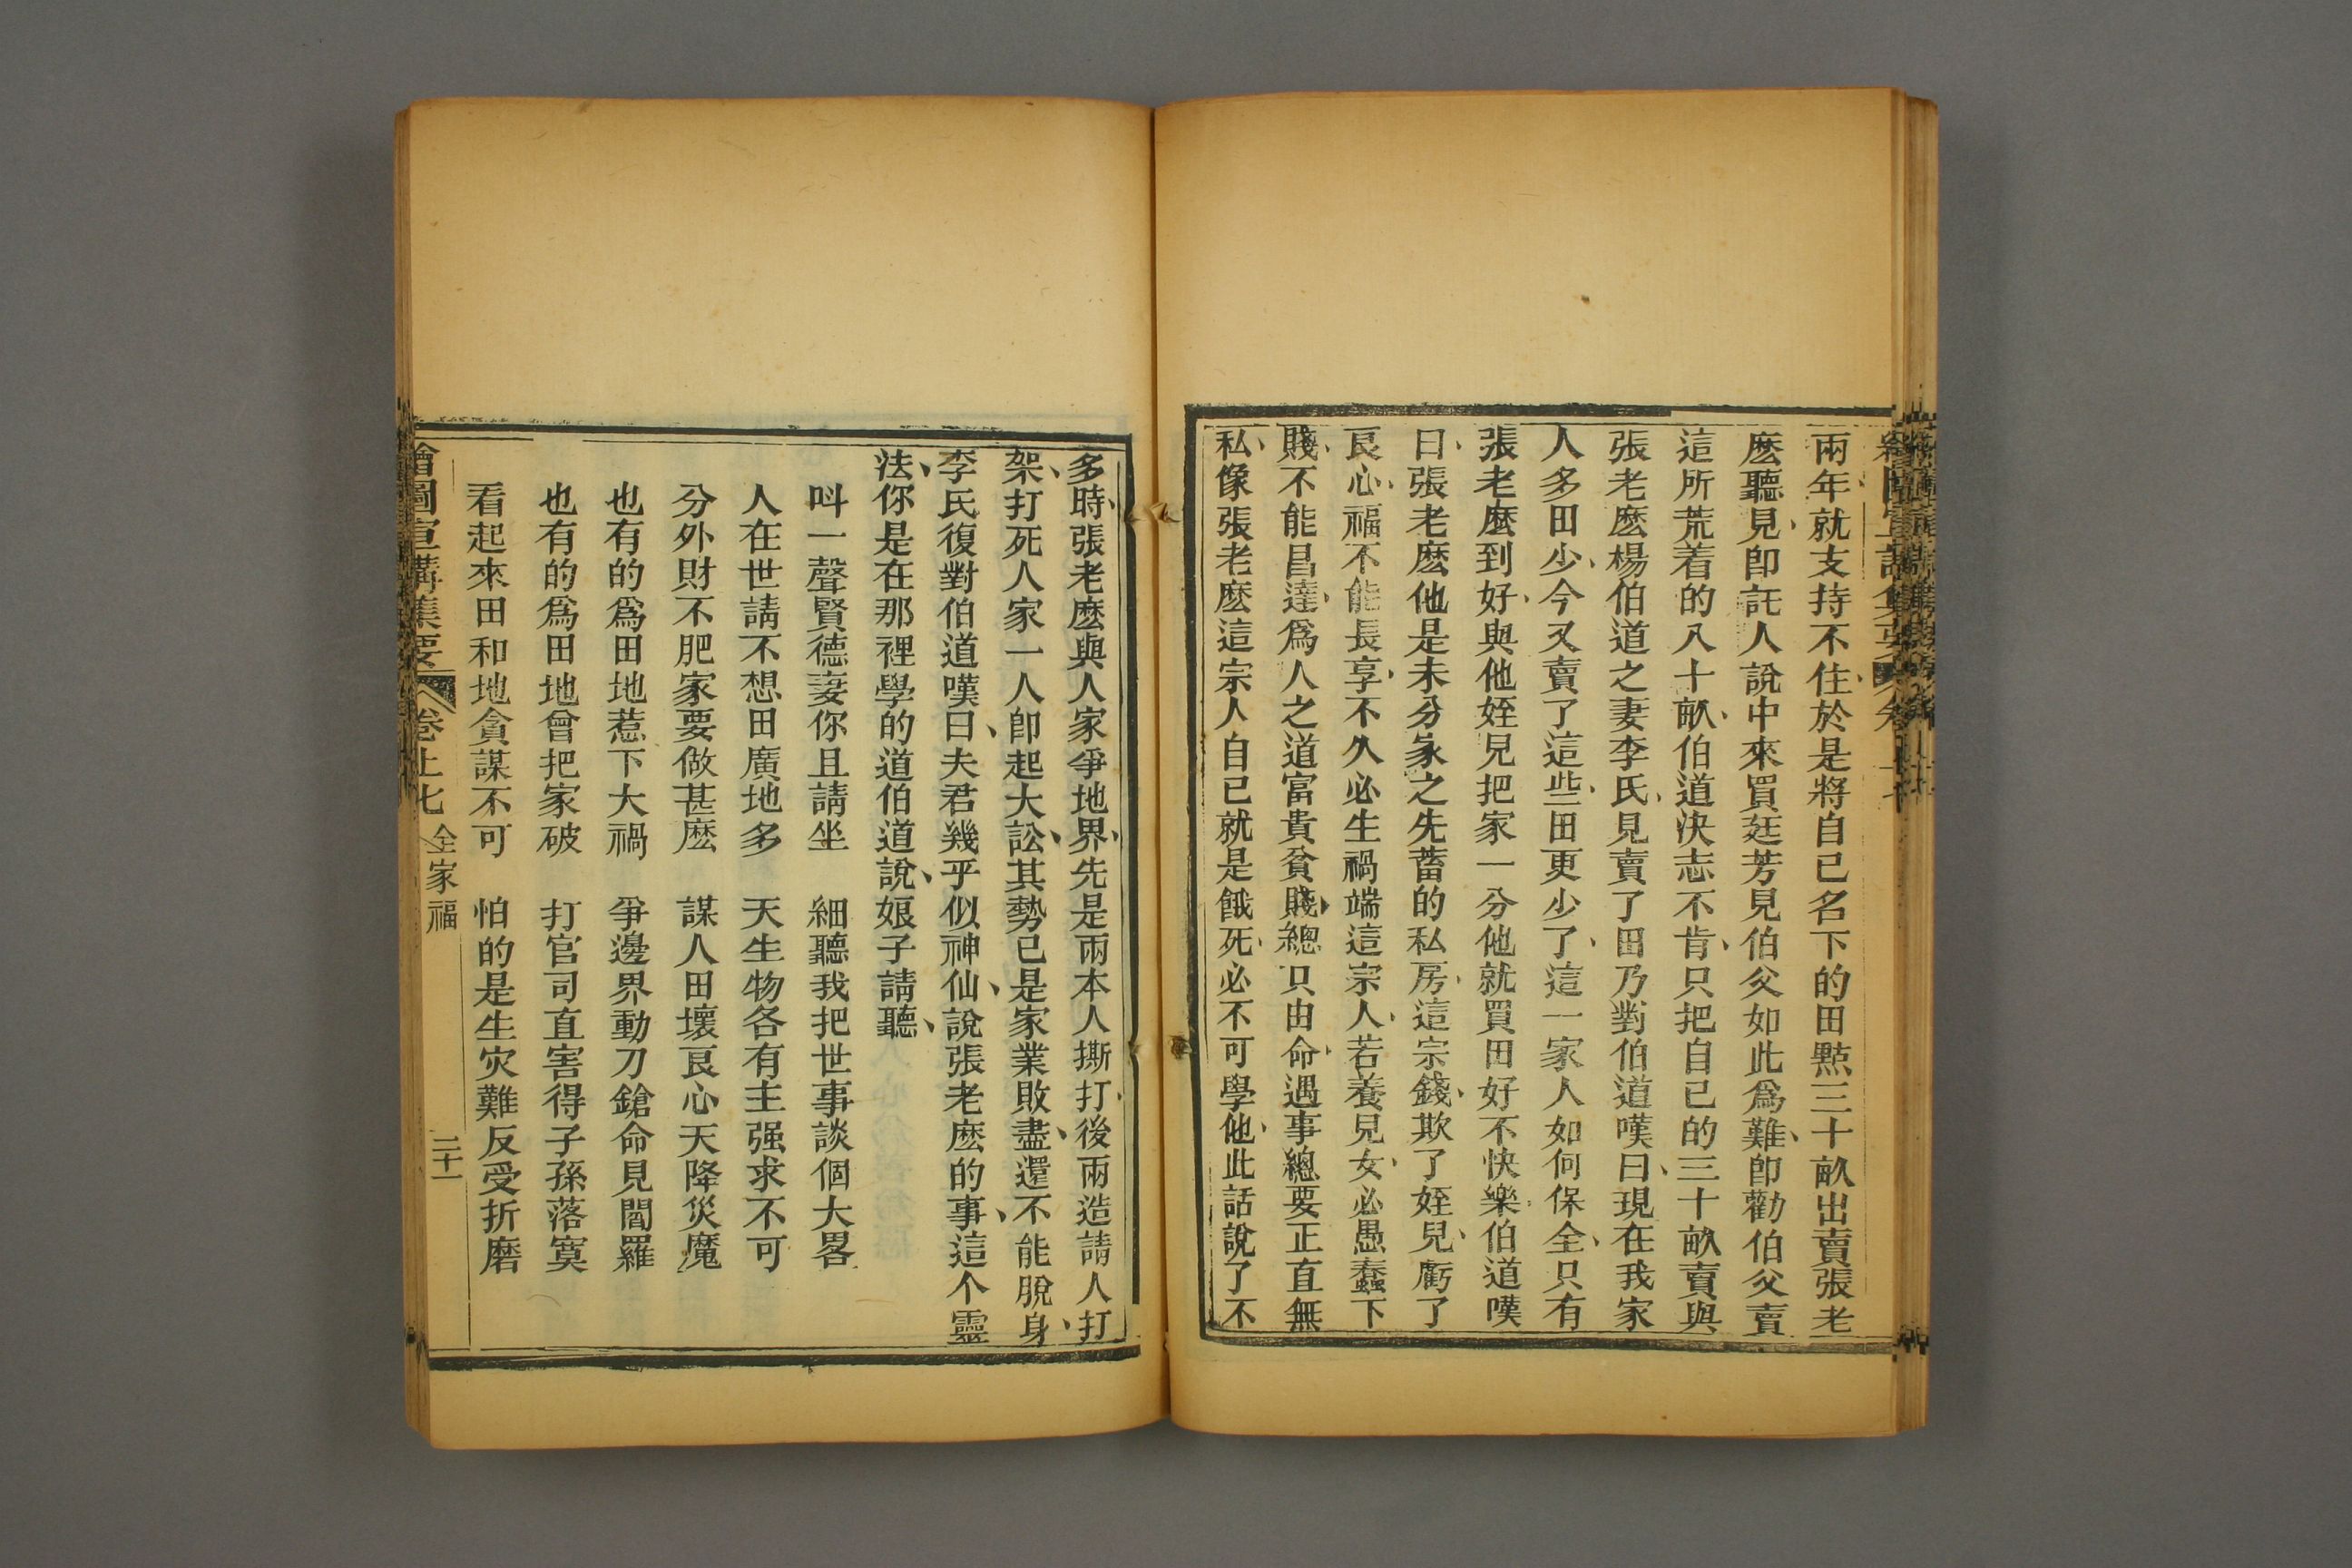 兩年、就支持不住、於是將自已名下的田㸃三十畝出賣張老
麽聽見、卽託人說中來買、廷芳見伯父如此爲難、卽勸伯父賣
這所荒着的八十畝、伯道決志不肯、只把自已的三十畝賣與
張老麽楊伯道之妻李氏、見賣了田乃對伯道嘆曰、現在我家
人多田少、今又賣了這些、田更少了、這一家人如何保全、只有
張老麽到好、與他姪兒把家一分他就買田好不快樂、伯道嘆
曰、張老麽他是未分家之先蓄的私房、這宗錢、欺了姪兒、虧了
良心、福不能長享、不久必生禍端這宗人、若養兒女、必愚蠢下
賤、不能昌達、爲人之道富貴貧賤、總只由命、遇事總要正直無
私、像張老麽這宗人自已就是餓死、必不可學他、此話說了不
多時、張老麽與人家爭地界、先是兩本人撕打、後兩造請人打
架、打死人家一人卽起大訟、其勢已是家業敗盡、還不能脫身、
李氏復對伯道嘆曰、夫君幾乎似神仙、說張老麽的事、這个靈
法、你是在那裡學的道伯道說、娘子請聽、
呌一聲賢德妻你且請坐　細聽我把世事談個大畧
人在世請不想田廣地多　天生物各有主强求不可
分外財不肥家要做甚麽　謀人田壞良心天降災魔
也有的爲田地惹下大禍　爭邊界動刀鎗命見閻羅
也有的爲田地曾把家破　打官司直害得子孫落寞
看起來田和地貪謀不可　怕的是生灾難反受折磨
繪圖宣講集要　卷上七　全家福　二十一